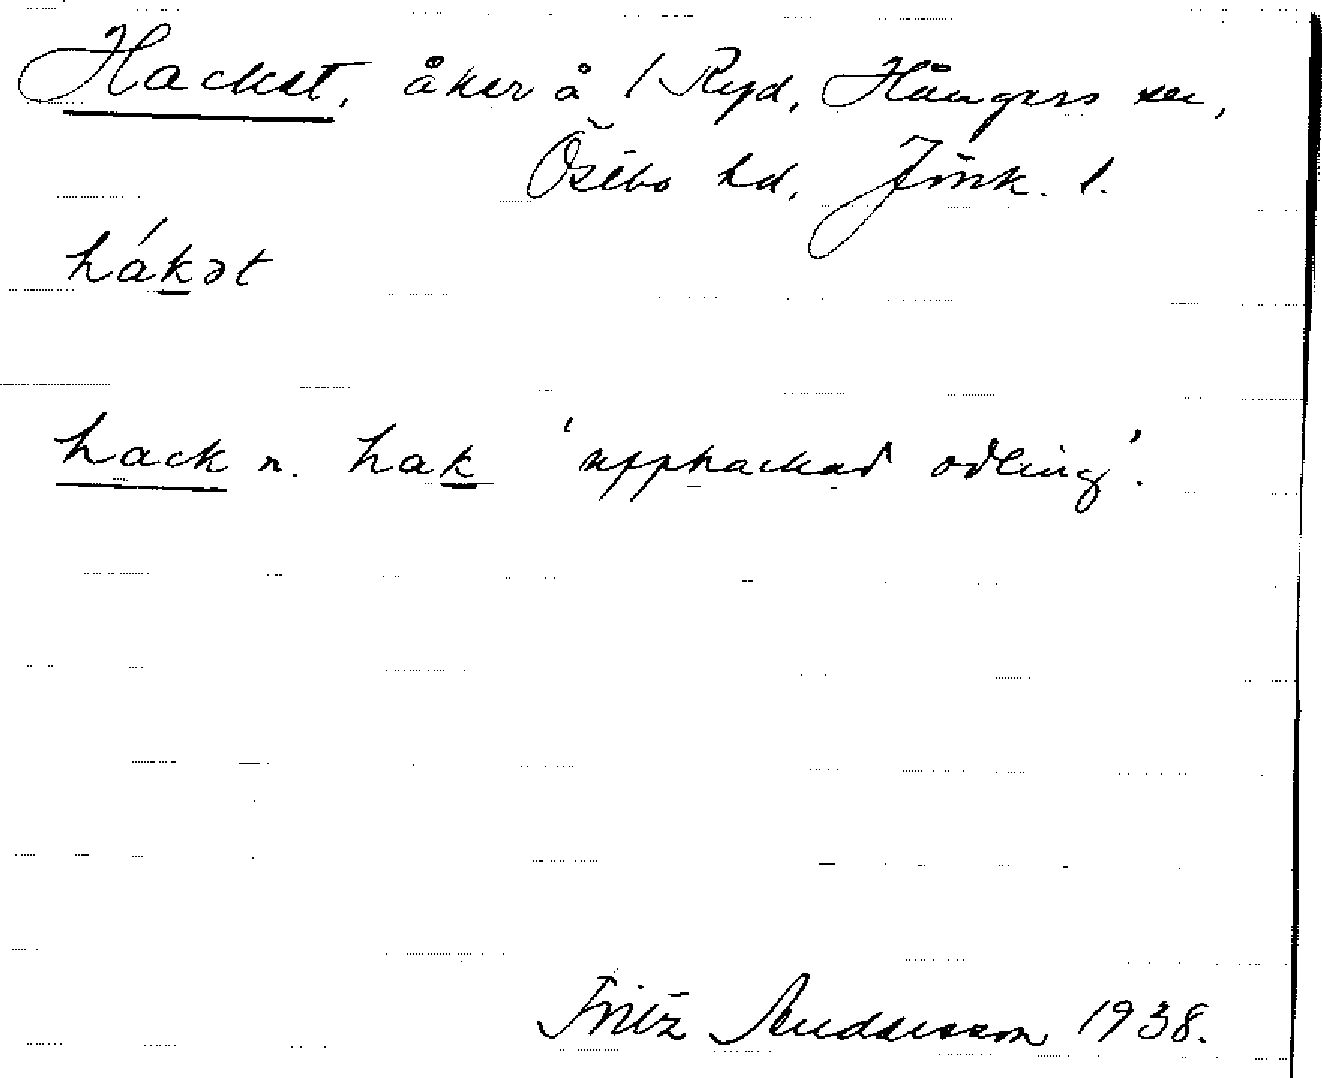 Hacket, åker å 1 Ryd, Hångers sn,
Östbo hd, Jönk. l.
hákət
hack n. hak 'upphackad odling'.
Fritz Andersson 1938.